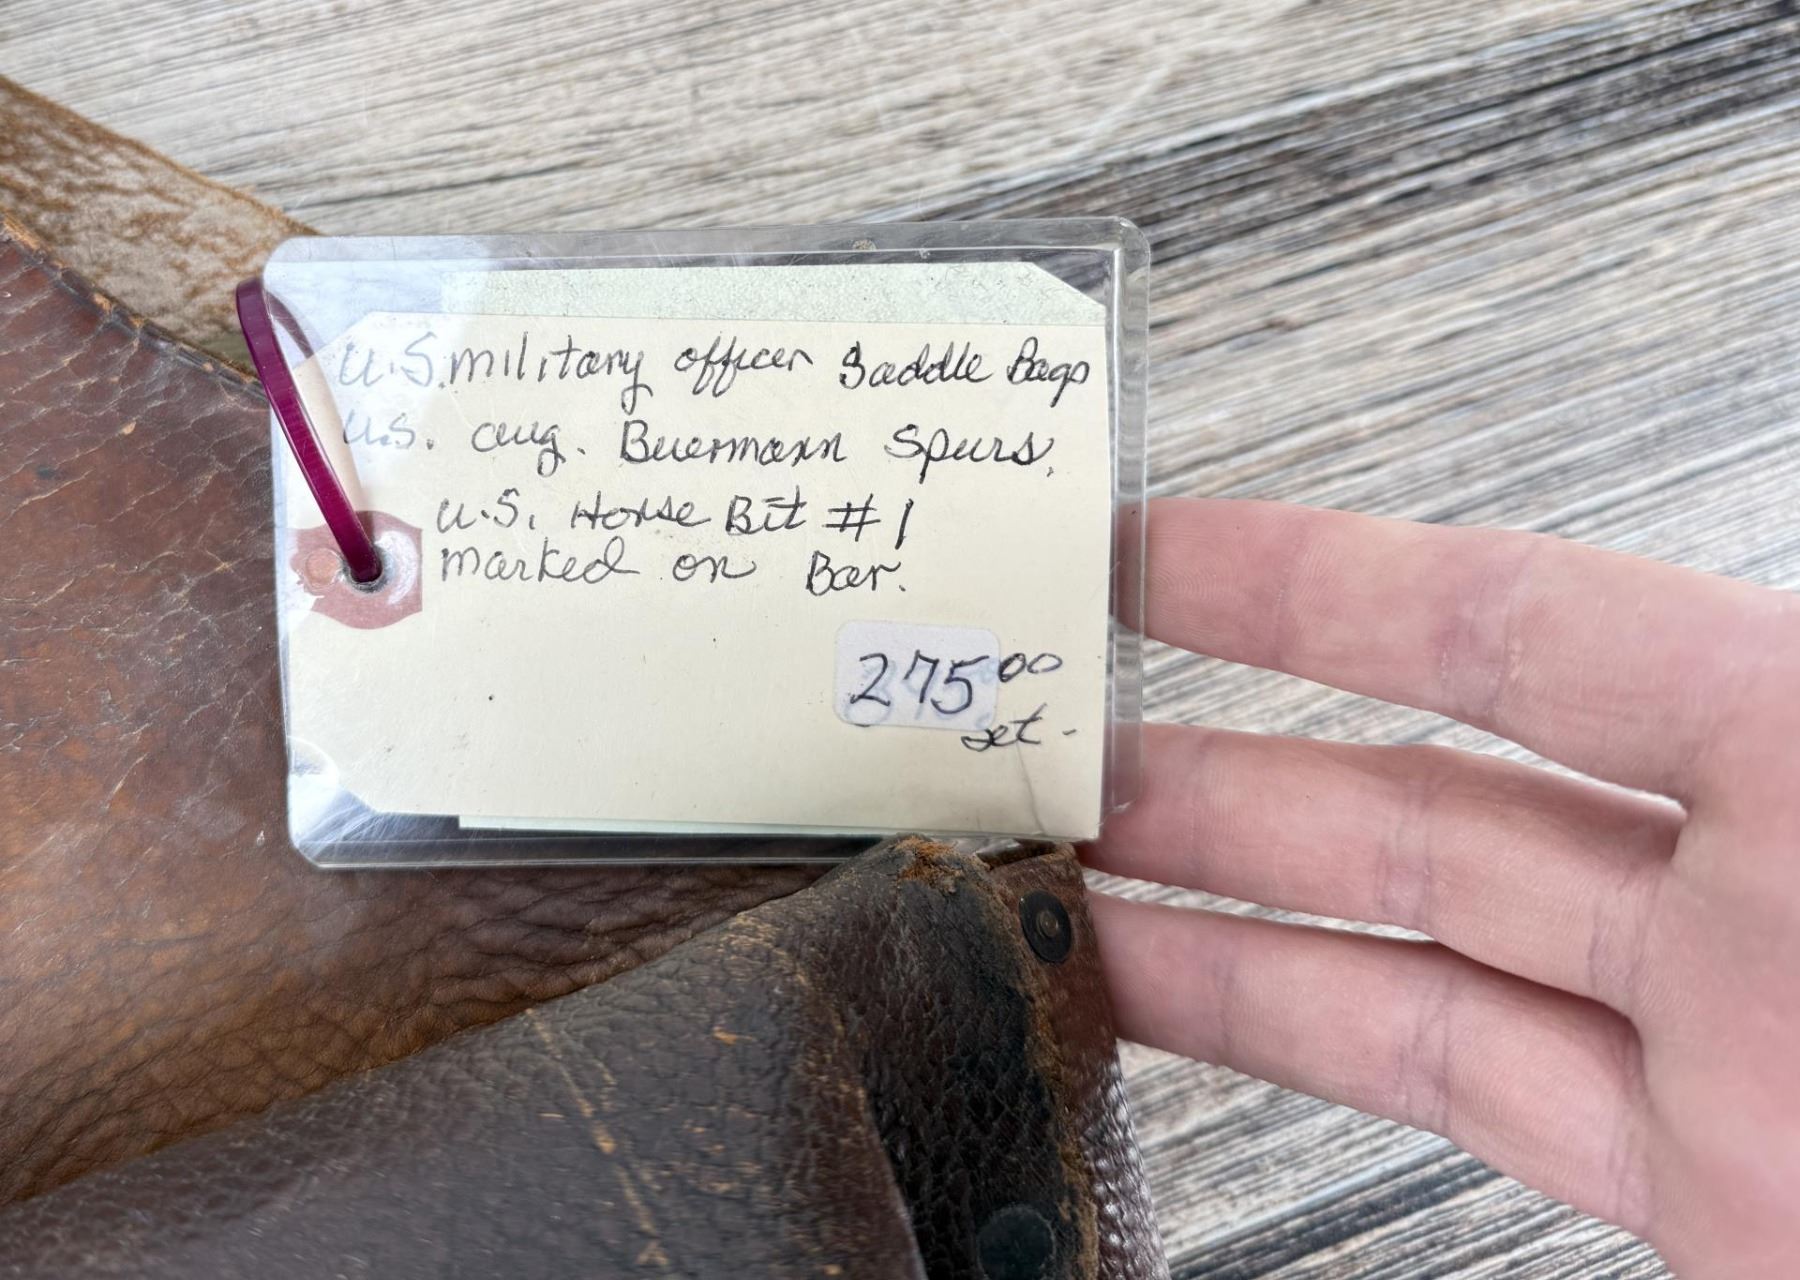 U.S. military officer Saddle Bags
U.S. Aug. Buermann Spurs.
U.S. Horse Bit #1
marked on Bar.
275.00
set-